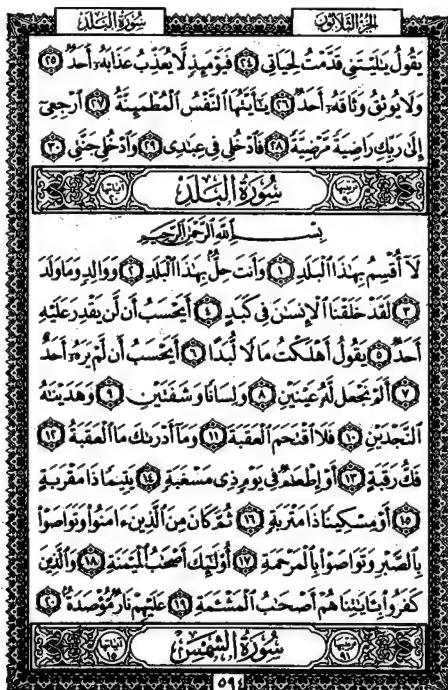 سُورَةُ البَلَدِ الجُزْءُ الثَّلَاثُونَ
يَقُولُ يَٰلَيْتَنِي قَدَّمْتُ لِحَيَاتِي ٢٤ فَيَوْمَئِذٍ لَّا يُعَذِّبُ عَذَابَهُۥٓ أَحَدٌ ٢٥
وَلَا يُوثِقُ وَثَاقَهُۥٓ أَحَدٌ ٢٦ يَٰٓأَيَّتُهَا ٱلنَّفْسُ ٱلْمُطْمَئِنَّةُ ٢٧ ٱرْجِعِىٓ
إِلَىٰ رَبِّكِ رَاضِيَةً مَّرْضِيَّةً ٢٨ فَٱدْخُلِى فِى عِبَٰدِى ٢٩ وَٱدْخُلِى جَنَّتِى ٣٠
ترتيبها ٩٠ سُورَةُ البَلَدِ آياتها ٢٠
بِسْمِ ٱللَّهِ ٱلرَّحْمَٰنِ ٱلرَّحِيمِ
لَآ أُقْسِمُ بِهَٰذَا ٱلْبَلَدِ ١ وَأَنتَ حِلٌّۢ بِهَٰذَا ٱلْبَلَدِ ٢ وَوَالِدٍ وَمَا وَلَدَ
٣ لَقَدْ خَلَقْنَا ٱلْإِنسَٰنَ فِى كَبَدٍ ٤ أَيَحْسَبُ أَن لَّن يَقْدِرَ عَلَيْهِ
أَحَدٌ ٥ يَقُولُ أَهْلَكْتُ مَالًا لُّبَدًا ٦ أَيَحْسَبُ أَن لَّمْ يَرَهُۥٓ أَحَدٌ
٧ أَلَمْ نَجْعَل لَّهُۥ عَيْنَيْنِ ٨ وَلِسَانًا وَشَفَتَيْنِ ٩ وَهَدَيْنَٰهُ
ٱلنَّجْدَيْنِ ١٠ فَلَا ٱقْتَحَمَ ٱلْعَقَبَةَ ١١ وَمَآ أَدْرَىٰكَ مَا ٱلْعَقَبَةُ ١٢
فَكُّ رَقَبَةٍ ١٣ أَوْ إِطْعَٰمٌ فِى يَوْمٍ ذِى مَسْغَبَةٍ ١٤ يَتِيمًا ذَا مَقْرَبَةٍ
١٥ أَوْ مِسْكِينًا ذَا مَتْرَبَةٍ ١٦ ثُمَّ كَانَ مِنَ ٱلَّذِينَ ءَامَنُوا۟ وَتَوَاصَوْا۟
بِٱلصَّبْرِ وَتَوَاصَوْا۟ بِٱلْمَرْحَمَةِ ١٧ أُو۟لَٰٓئِكَ أَصْحَٰبُ ٱلْمَيْمَنَةِ ١٨ وَٱلَّذِينَ
كَفَرُوا۟ بِـَٔايَٰتِنَا هُمْ أَصْحَٰبُ ٱلْمَشْـَٔمَةِ ١٩ عَلَيْهِمْ نَارٌ مُّؤْصَدَةٌۢ ٢٠
ترتيبها ٩١ سُورَةُ الشَّمْسِ آياتها ١٥
٥٩٤